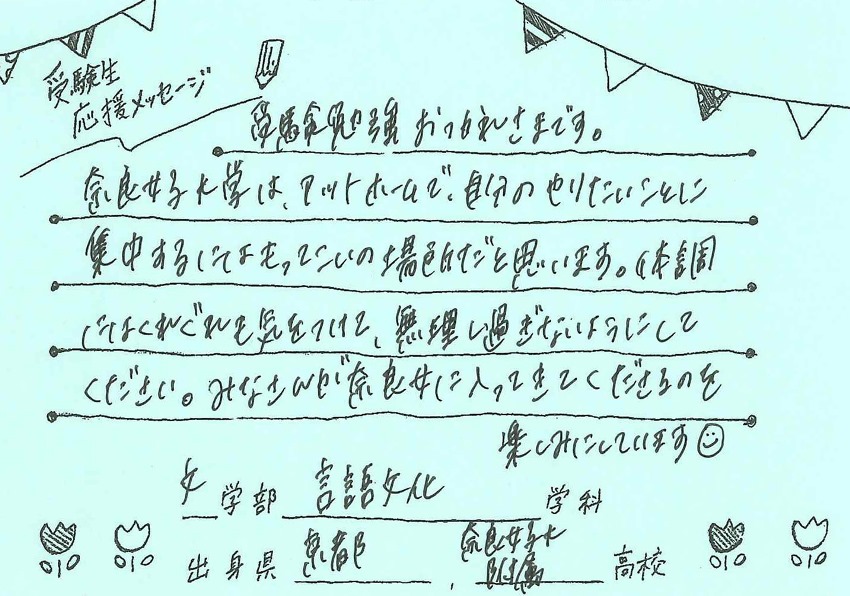 受験生
応援メッセージ
受験勉強おつかれさまです。
奈良女子大学は、アットホームで、自分のやりたいことに
集中するにはもってこいの場所だと思います。体調
にはくれぐれも気をつけて、無理し過ぎないようにして
ください。みなさんが奈良女に入ってきてくださるのを
楽しみにしています
文学部 言語文化 学科
出身県 京都 , 奈良女子大附属 高校